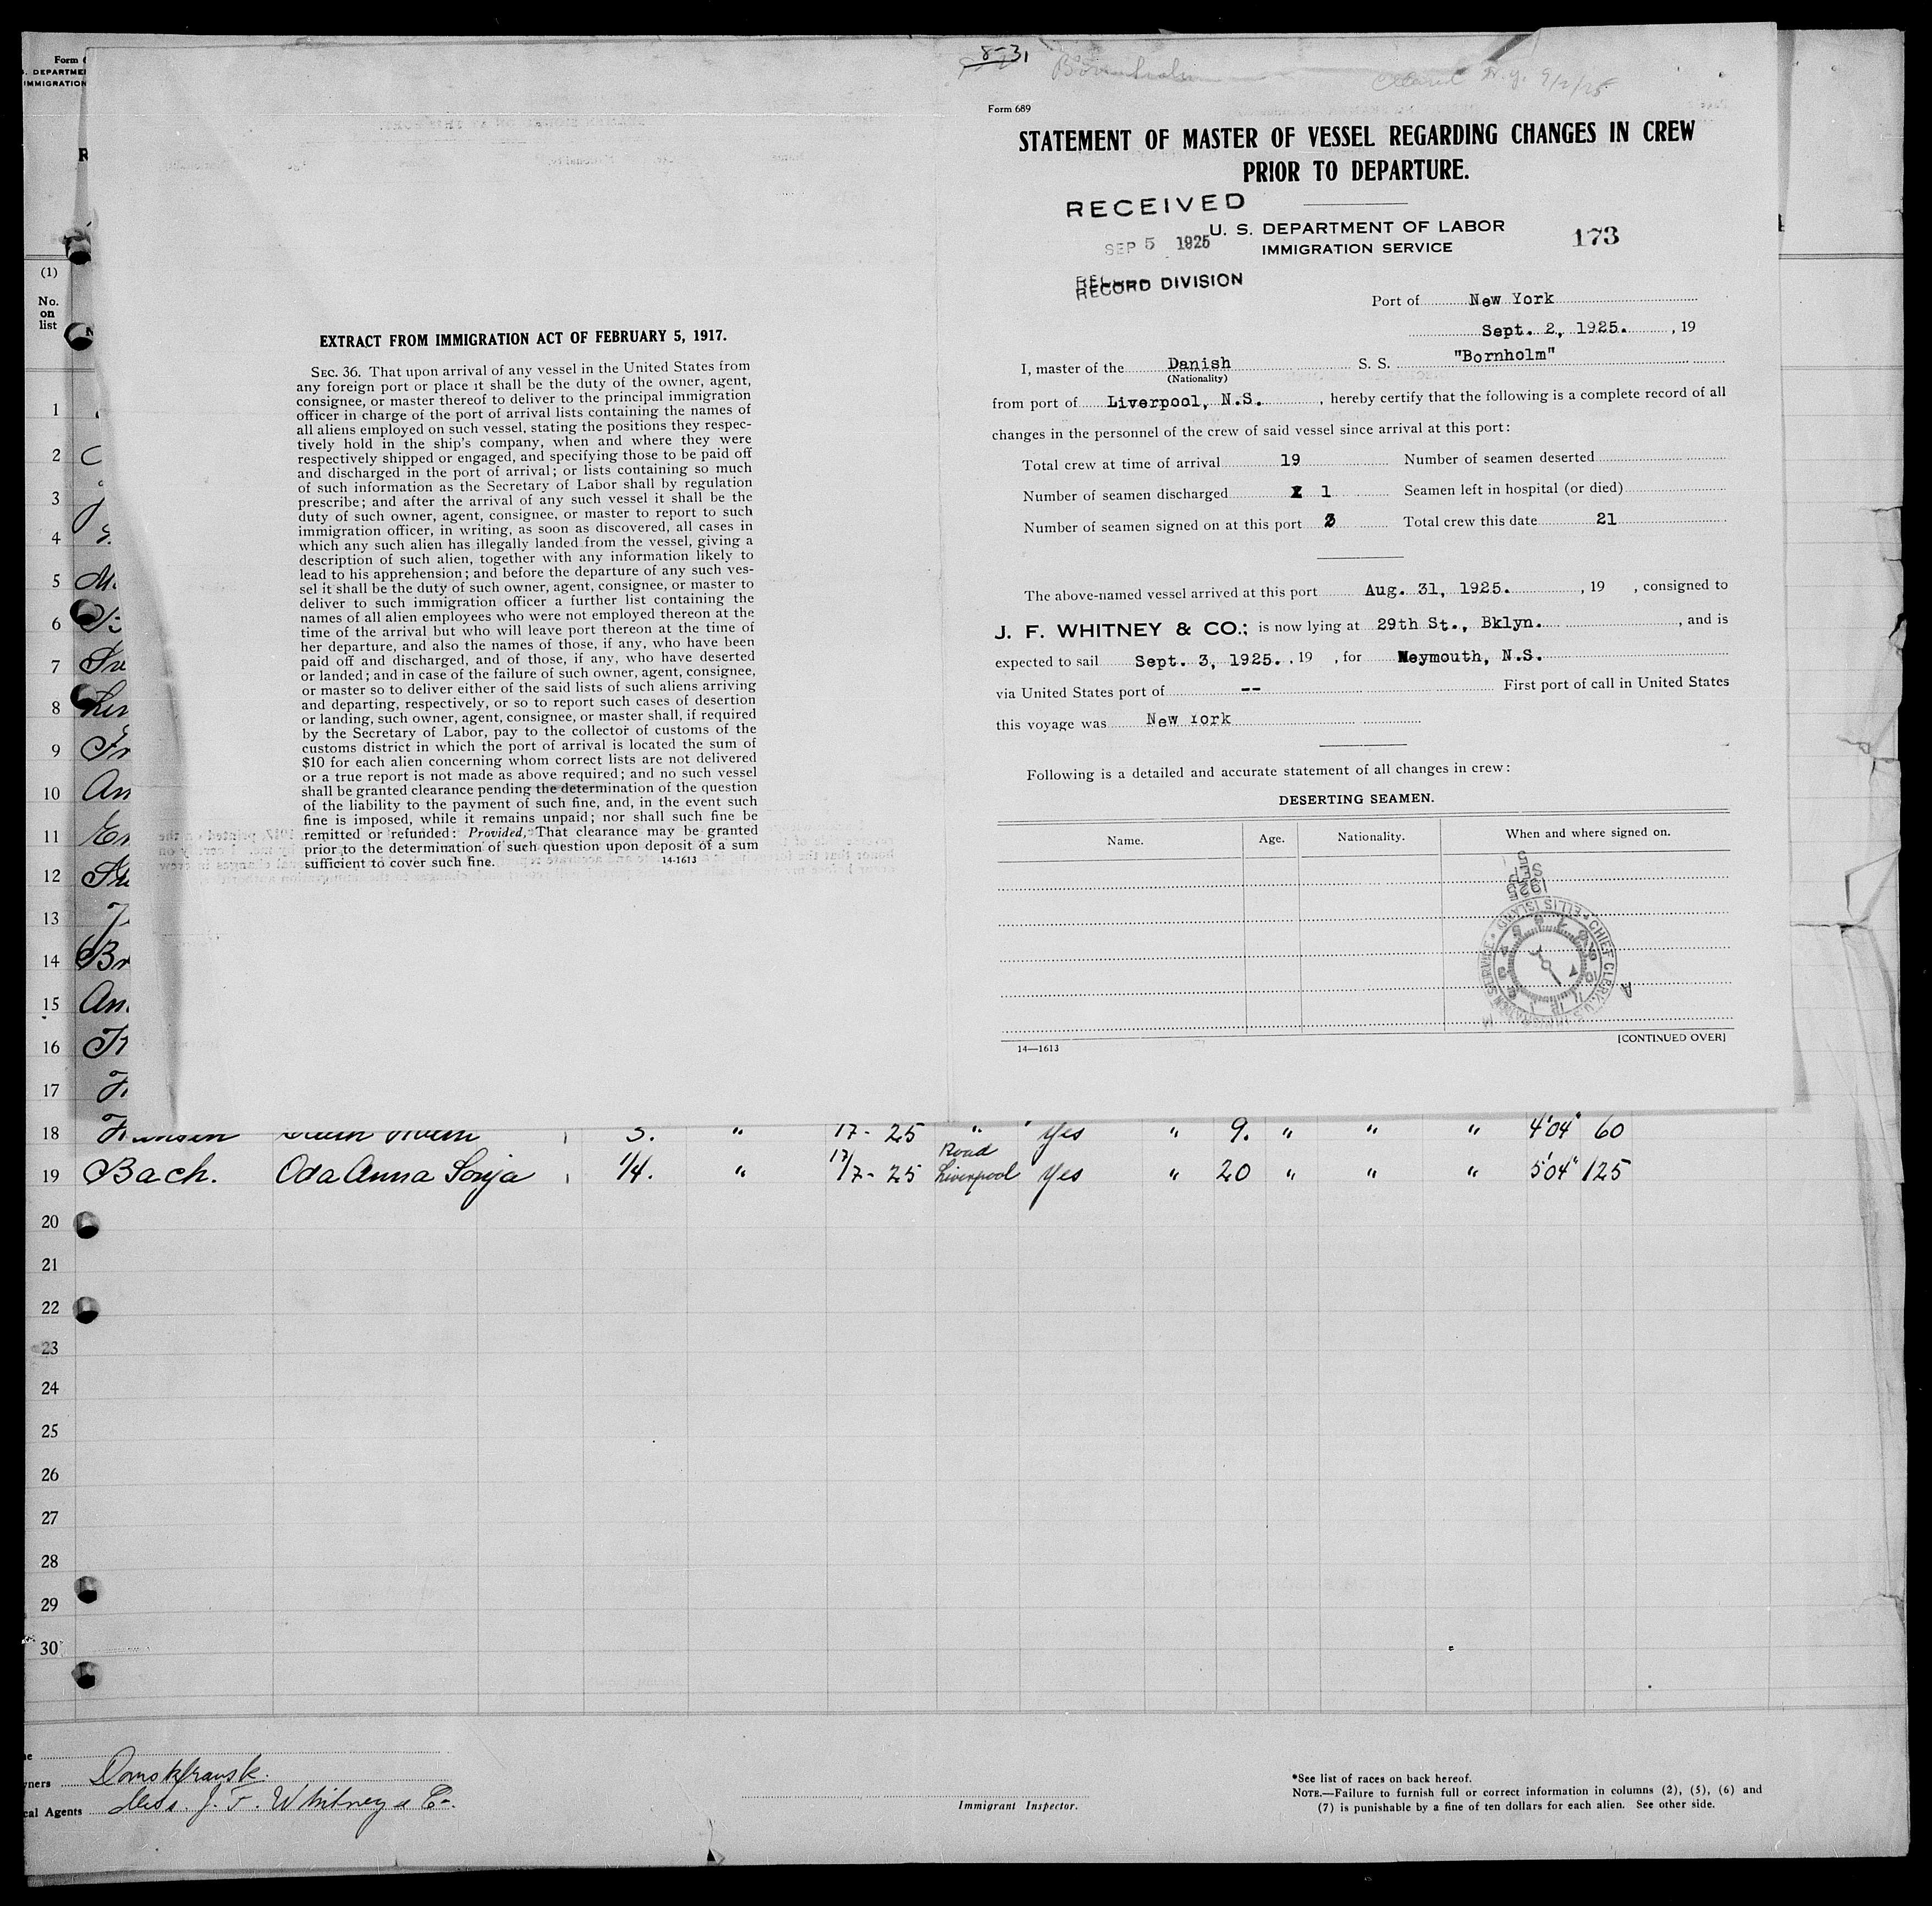 Form 6
S. DEPARTME
IMMIGRATION
(1)
No.
on
list
EXTRACT FROM IMMIGRATION ACT OF FEBRUARY 5, 1917.
SEC. 36. That upon arrival of any vessel in the United States from
any foreign port or place it shall be the duty of the owner, agent,
consignee, or master thereof to deliver to the principal immigration
officer in charge of the port of arrival lists containing the names of
all aliens employed on such vessel, stating the positions they respec-
tively hold in the ship's company, when and where they were
respectively shipped or engaged, and specifying those to be paid off
and discharged in the port of arrival; or lists containing so much
of such information as the Secretary of Labor shall by regulation
prescribe; and after the arrival of any such vessel it shall be the
duty of such owner, agent, consignee, or master to report to such
immigration officer, in writing, as soon as discovered, all cases in
which any such alien has illegally landed from the vessel, giving a
description of such alien, together with any information likely to
lead to his apprehension; and before the departure of any such ves-
sel it shall be the duty of such owner, agent, consignee, or master to
deliver to such immigration officer a further list containing the
names of all alien employees who were not employed thereon at the
time of the arrival but who will leave port thereon at the time of
her departure, and also the names of those, if any, who have been
paid off and discharged, and of those, if any, who have deserted
or landed; and in case of the failure of such owner, agent, consignee,
or master so to deliver either of the said lists of such aliens arriving
and departing, respectively, or so to report such cases of desertion
or landing, such owner, agent, consignee, or master shall, if required
by the Secretary of Labor, pay to the collector of customs of the
customs district in which the port of arrival is located the sum of
$10 for each alien concerning whom correct lists are not delivered
or a true report is not made as above required; and no such vessel
shall be granted clearance pending the determination of the question
of the liability to the payment of such fine, and, in the event such
fine is imposed, while it remains unpaid; nor shall such fine be
remitted or refunded: Provided, That clearance may be granted
prior to the determination of such question upon deposit of a sum
sufficient to cover such fine. 14-1613
8-31
Bornholm N.Y. 9/2/25
Form 689
STATEMENT OF MASTER OF VESSEL REGARDING CHANGES IN CREW
PRIOR TO DEPARTURE.
RECEIVED
SEP 5 1925
RECORD DIVISION
U. S. DEPARTMENT OF LABOR
IMMIGRATION SERVICE
173
Port of New York
Sept. 2, 1925. , 19
I, master of the Danish S. S. "Bornholm"
(Nationality)
from port of Liverpool, N.S. , hereby certify that the following is a complete record of all
changes in the personnel of the crew of said vessel since arrival at this port:
Total crew at time of arrival 19 Number of seamen deserted
Number of seamen discharged 1 Seamen left in hospital (or died)
Number of seamen signed on at this port 3 Total crew this date 21
The above-named vessel arrived at this port Aug. 31, 1925. , 19 , consigned to
J. F. WHITNEY & CO.; is now lying at 29th St., Bklyn. , and is
expected to sail Sept. 3, 1925. , 19 , for Weymouth, N.S.
via United States port of -- First port of call in United States
this voyage was New York
Following is a detailed and accurate statement of all changes in crew:
DESERTING SEAMEN.
Name. Age. Nationality. When and where signed on.
SEP 5
1925
CHIEF CLERK, U.S. IMMIGRATION SERVICE • ELLIS ISLAND •
14—1613 [CONTINUED OVER]
1
2
3
4
5
6
7
8
9
10 An
11
12
13
14 Br
15 An
16
17
18 3. " 17- 25 " yes " 9. " " " 4'04" 60
19 Bach. Oda Anna Sonja 1/4. " 17/7- 25 Road Liverpool yes " 20 " " " 5'04" 125
20
21
22
23
24
25
26
27
28
29
30
ners
cal Agents Mess. J. F. Whitney & Co.
Immigrant Inspector.
*See list of races on back hereof.
NOTE.—Failure to furnish full or correct information in columns (2), (5), (6) and
(7) is punishable by a fine of ten dollars for each alien. See other side.